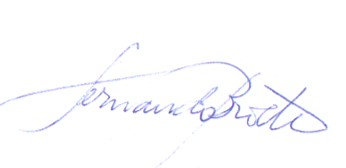 Fernando Brito